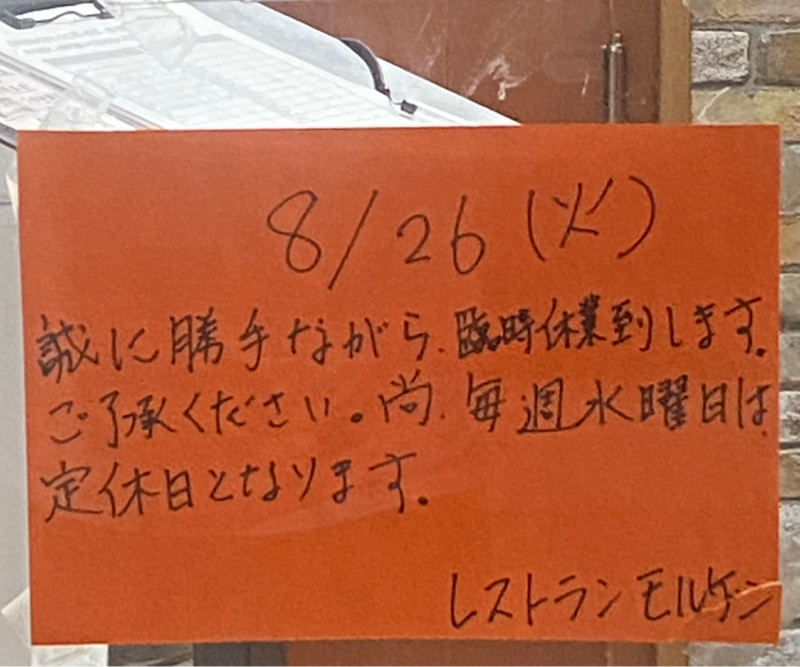 8/26(火)
誠に勝手ながら、臨時休業到します。
ご了承ください。尚、毎週水曜日は、
定休日となります。
レストランモルゲン